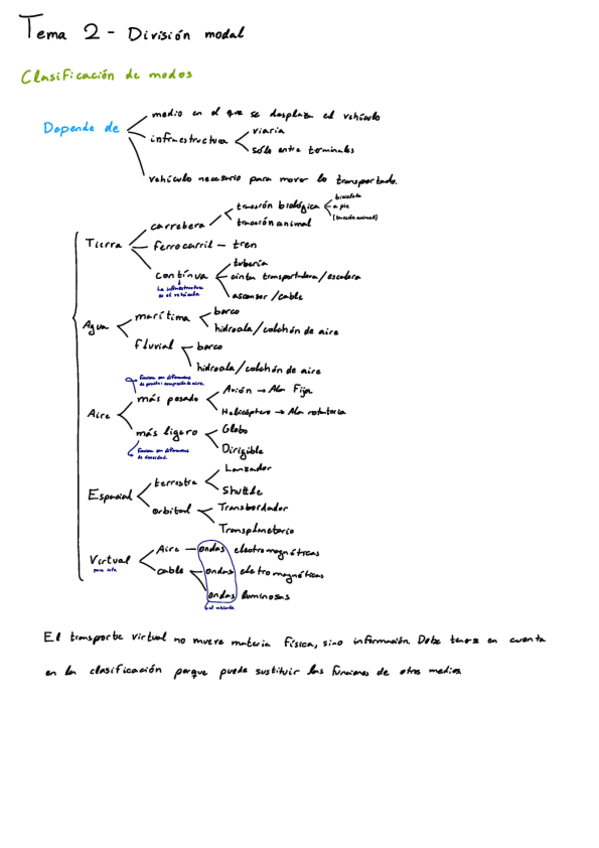 Tema 2 - División modal
Clasificación de modos
Depende de
medio en el que se desplaza el vehículo
infraestructura
viaria
sólo entre terminales
vehículo necesario para mover lo transportado.
Tierra
carretera
tracción biológica
bicicleta
a pie
tracción animal
ferrocarril - tren
contínua
La infraestructura
es el vehículo
tubería
cinta transportadora/escalera
ascensor/cable
Agua
marítima
barco
hidroala/colchón de aire
fluvial
barco
hidroala/colchón de aire
Aire
más pesado
Avión → Ala Fija
Helicóptero → Ala rotatoria
más ligero
Funcionan por diferencias
de densidad.
Globo
Dirigible
Espacial
terrestre
Lanzador
Shuttle
orbital
Transbordador
Transplanetario
Virtual
Aire - ondas electromagnéticas
cable
ondas electromagnéticas
ondas luminosas
El transporte virtual no mueve materia física, sino información. Debe tenerse en cuenta
en la clasificación porque puede sustituir las funciones de otros medios.